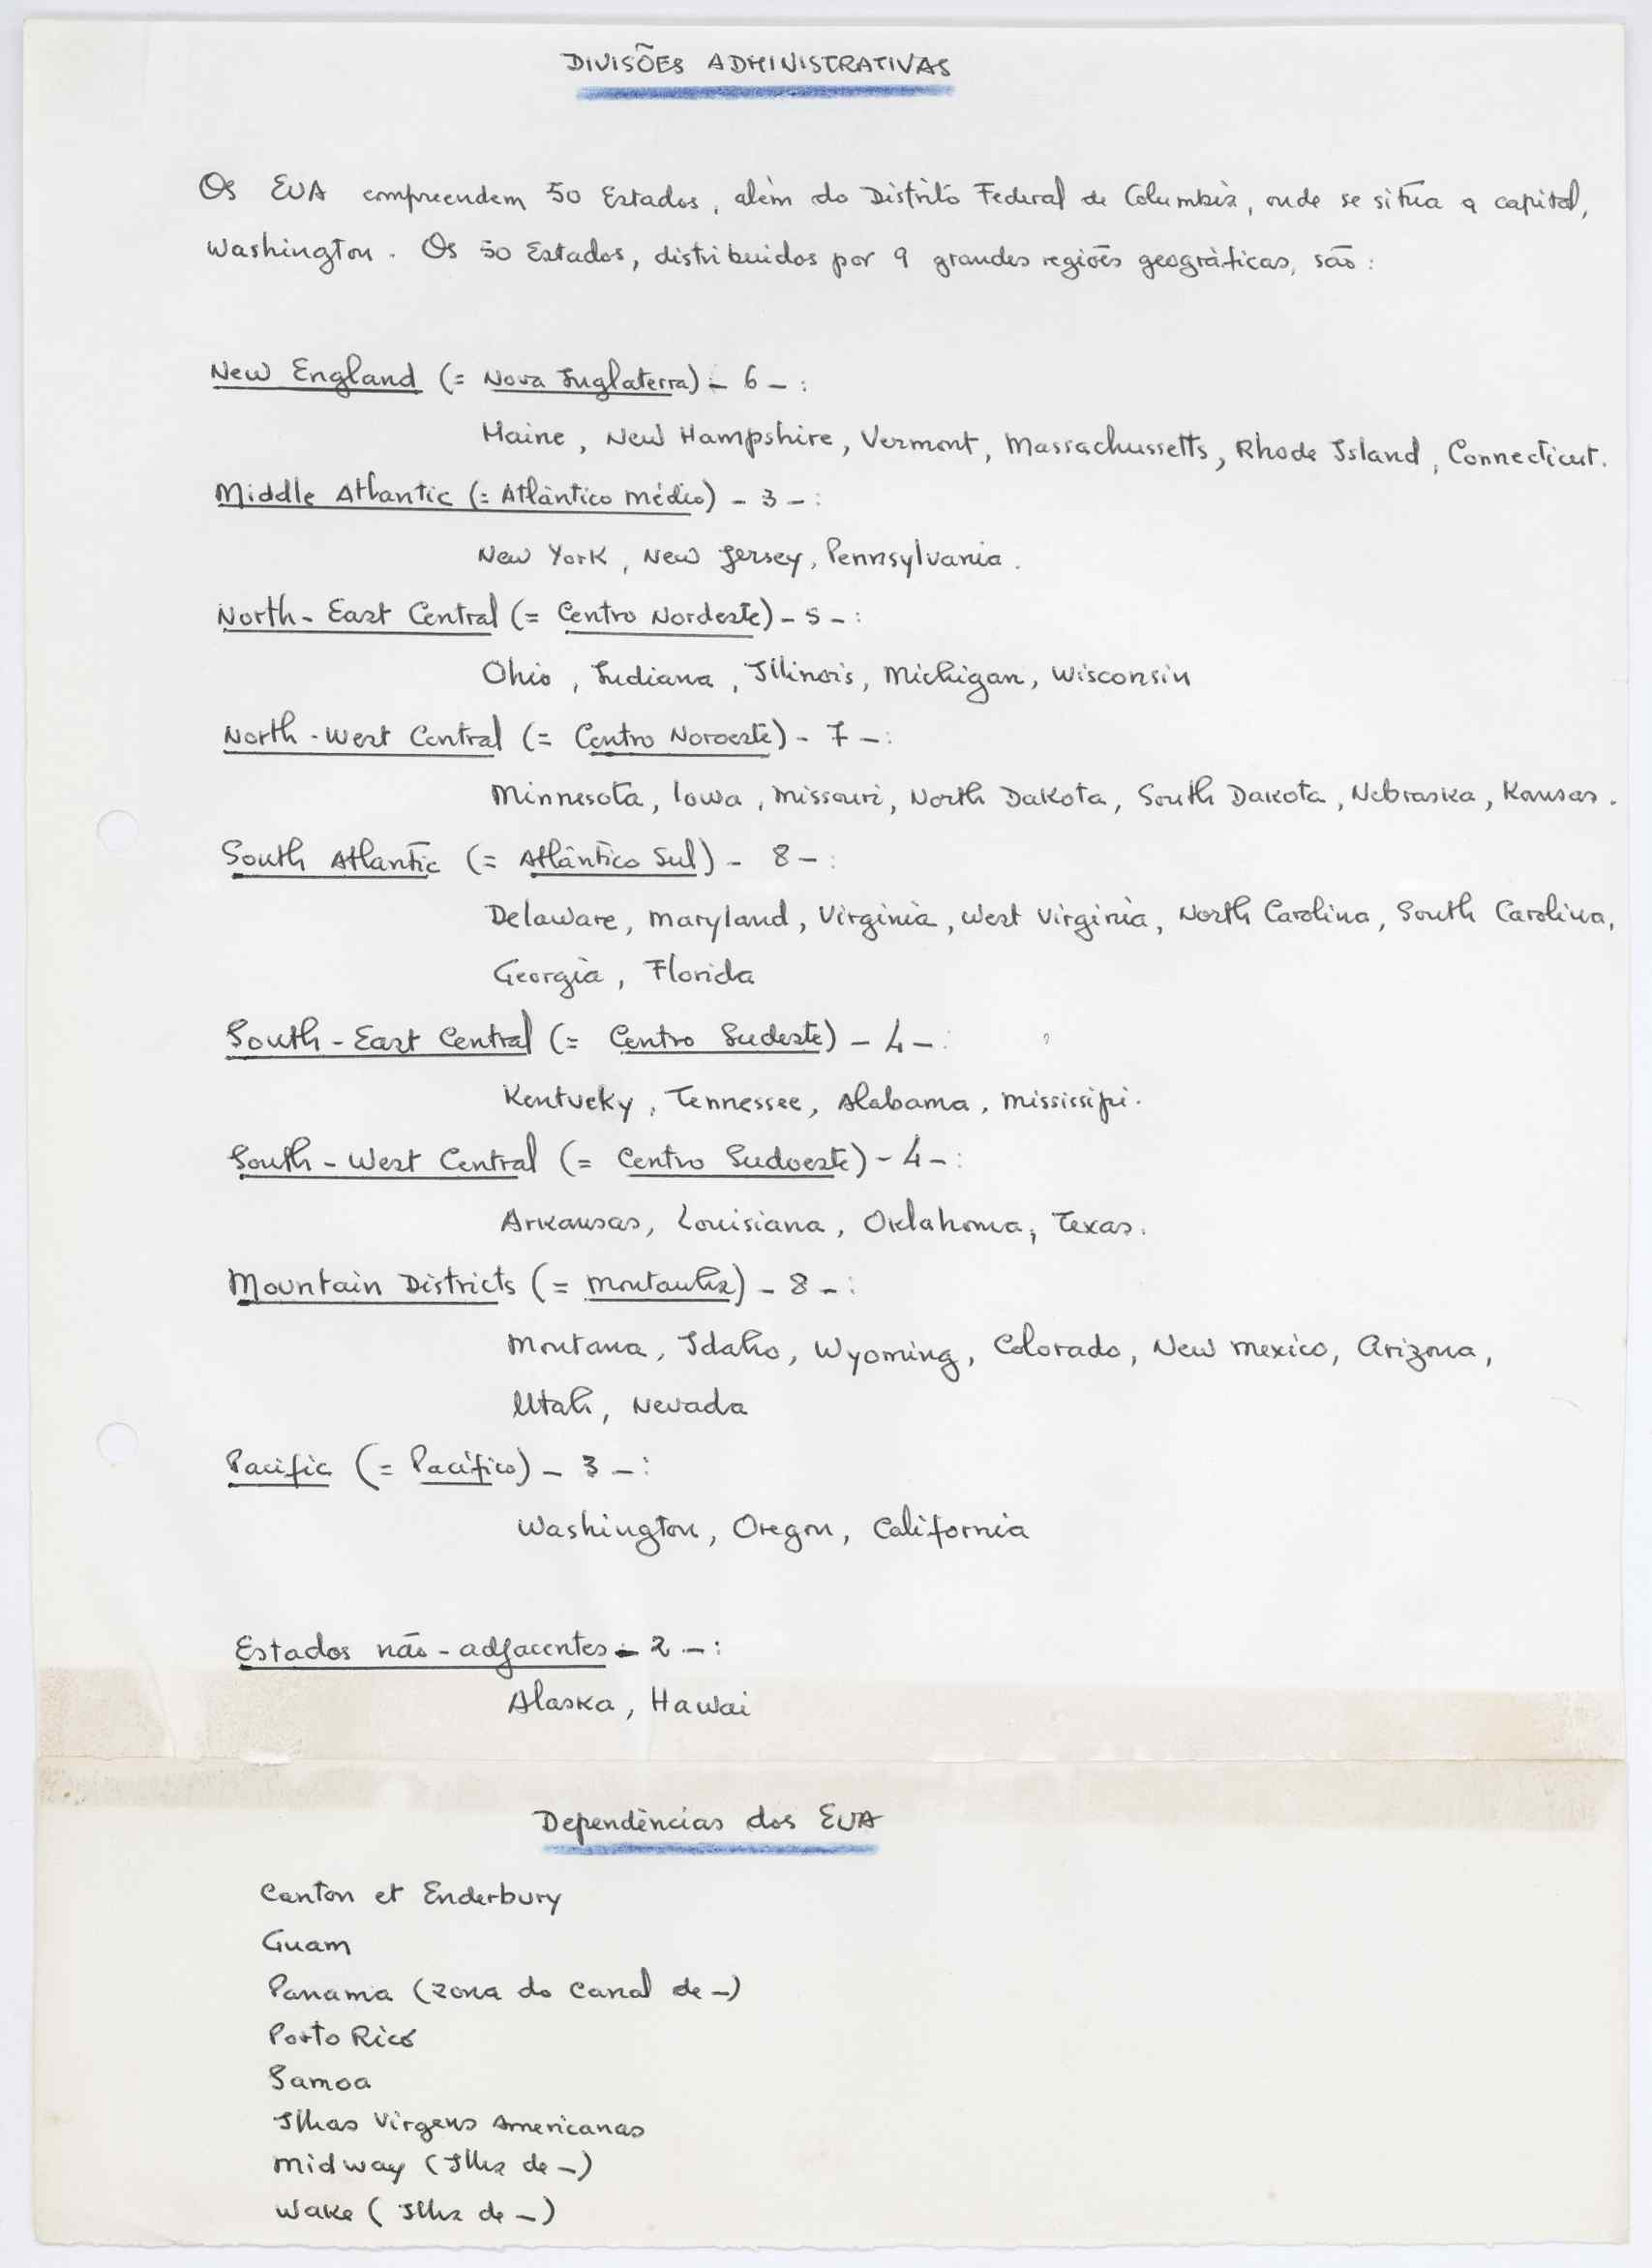 DIVISÕES ADMINISTRATIVAS
Os EUA compreendem 50 Estados, além do Distrito Federal de Columbia, onde se situa a capital,
Washington. Os 50 Estados, distribuidos por 9 grandes regiões geográficas, são:
New England (= Nova Inglaterra) - 6 -:
Maine, New Hampshire, Vermont, Massachussetts, Rhode Island, Connecticut.
Middle Atlantic (= Atlântico Médio) - 3 -:
New York, New Jersey, Pennsylvania.
North-East Central (= Centro Nordeste) - 5 -:
Ohio, Indiana, Illinois, Michigan, Wisconsin
North-West Central (= Centro Noroeste) - 7 -:
Minnesota, Iowa, Missouri, North Dakota, South Dakota, Nebraska, Kansas.
South Atlantic (= Atlântico Sul) - 8 -:
Delaware, Maryland, Virginia, West Virginia, North Carolina, South Carolina,
Georgia, Florida
South-East Central (= Centro Sudeste) - 4 -:
Kentucky, Tennessee, Alabama, Mississipi.
South-West Central (= Centro Sudoeste) - 4 -:
Arkansas, Louisiana, Oklahoma, Texas.
Mountain Districts (= Montanha) - 8 -:
Montana, Idaho, Wyoming, Colorado, New Mexico, Arizona,
Utah, Nevada
Pacific (= Pacífico) - 3 -:
Washington, Oregon, California
Estados não-adjacentes - 2 -:
Alaska, Hawai
Dependências dos EUA
Canton et Enderbury
Guam
Panama (zona do Canal de -)
Porto Rico
Samoa
Ilhas Virgens Americanas
Midway (Ilha de -)
Wake (Ilha de -)